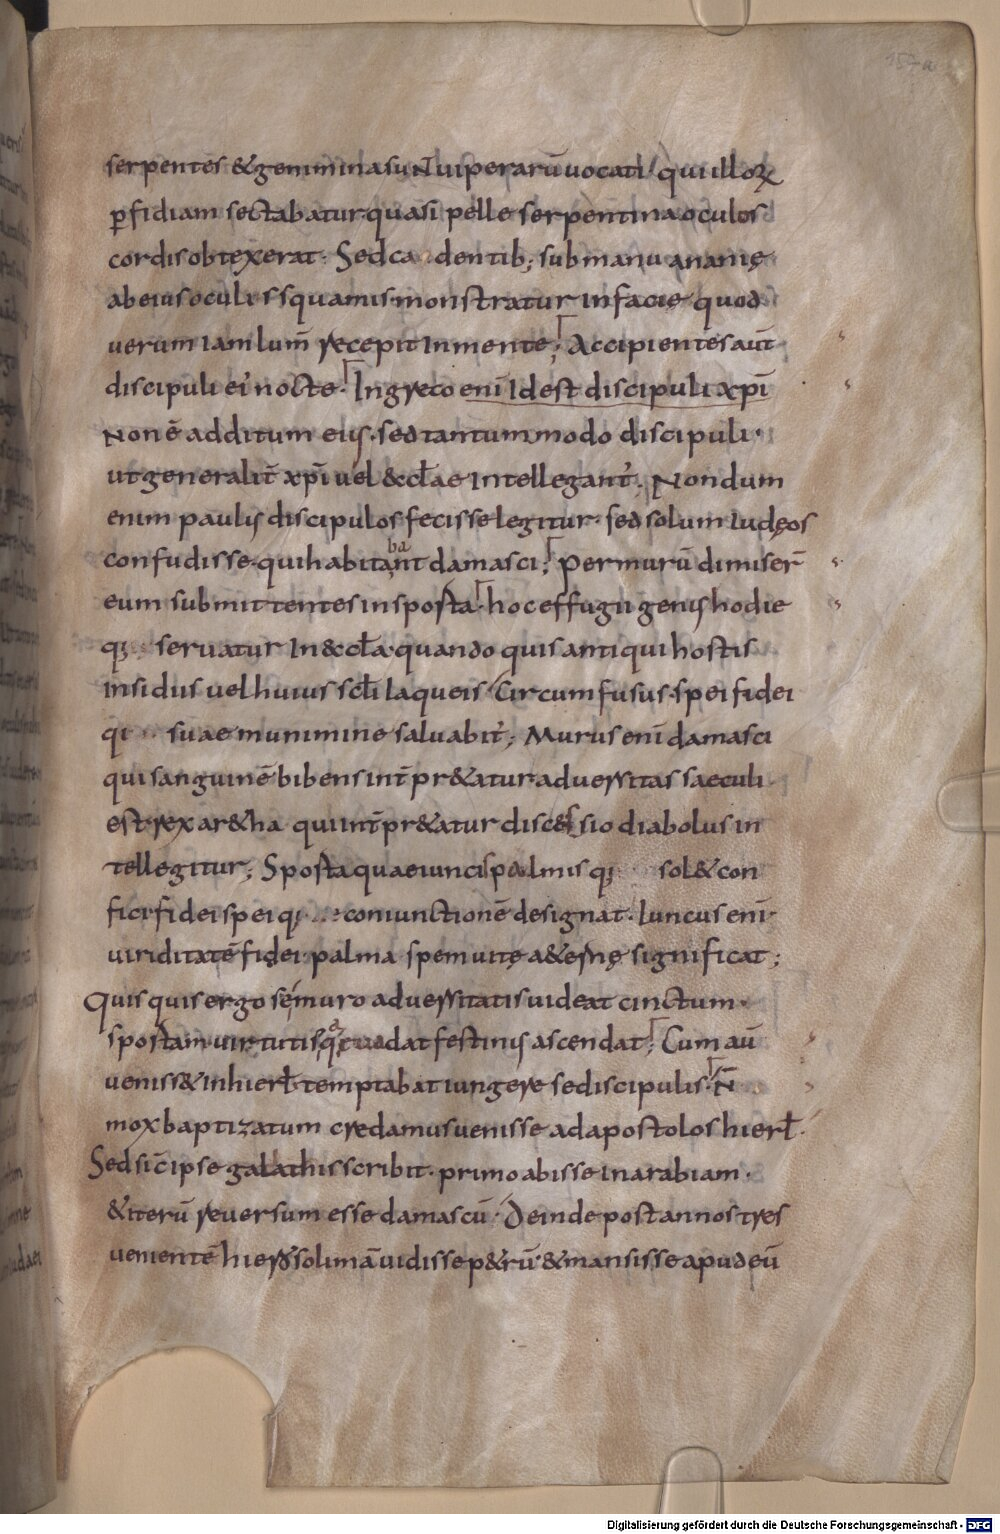 157 a
serpentes & gemimina suN uiperarū uocati / qui illoꝝ
ꝑfidiam sectabatur quasi pelle serpentina oculos
cordis obtexerat· Sed ca dentib; sub manu ananię·
ab eius oculis squamis· monstratur In facie quod
uerum iam lum̄ recepit In mente; Accipientes aut̄
discipuli ei' nocte· In greco eni Id est discipuli xp̄i
Non ē additum eius· sed tantummodo discipuli·
ut generalit̄ xp̄i uel &cl̄ae Intellegant'; Nondum
enim paulus discipulos fecisse legitur· sed solum Iudęos
confudisse· qui habitabant damasci; Per murū dimiser̄
eum submittentes in sporta· hoc effugii genus hodie
qꝫ seruatur In &cl̄a· quando quis antiqui hostis
Insidiis uel huius scl̄i laqueis Circumfusus· spei fidei
qꝫ suae munimine saluabit'; Murus eni damasci
qui sanguinē bibens int̄pr&atur aduersitas saeculi
est rex ar&ha qui int̄pr&atur discessio diabolus in
tellegitur; Sporta quae iuncis palmis qꝫ sol& con
fici fidei spei qꝫ coniunctionē designat· Iuncus eni·
uiriditatē fidei· palma spem uitę a&ernę significat;
Quisquis ergo se muro aduersitatis uideat cinctum·
sportam uirtutis qua euadat festinus ascendat; Cum aū
uenisset In hierl̄· temptabat iungere se discipulis· N̄
mox baptizatum credamus uenisse ad apostolos hierl̄·
Sed sic̄ ipse galathis scribit· primo abisse in arabiam·
& iterū reuersum esse damascū· Deinde post annos tres
uenientē hierosolimā uidisse p&rū· & mansisse apud eū
Digitalisierung gefördert durch die Deutsche Forschungsgemeinschaft - DFG